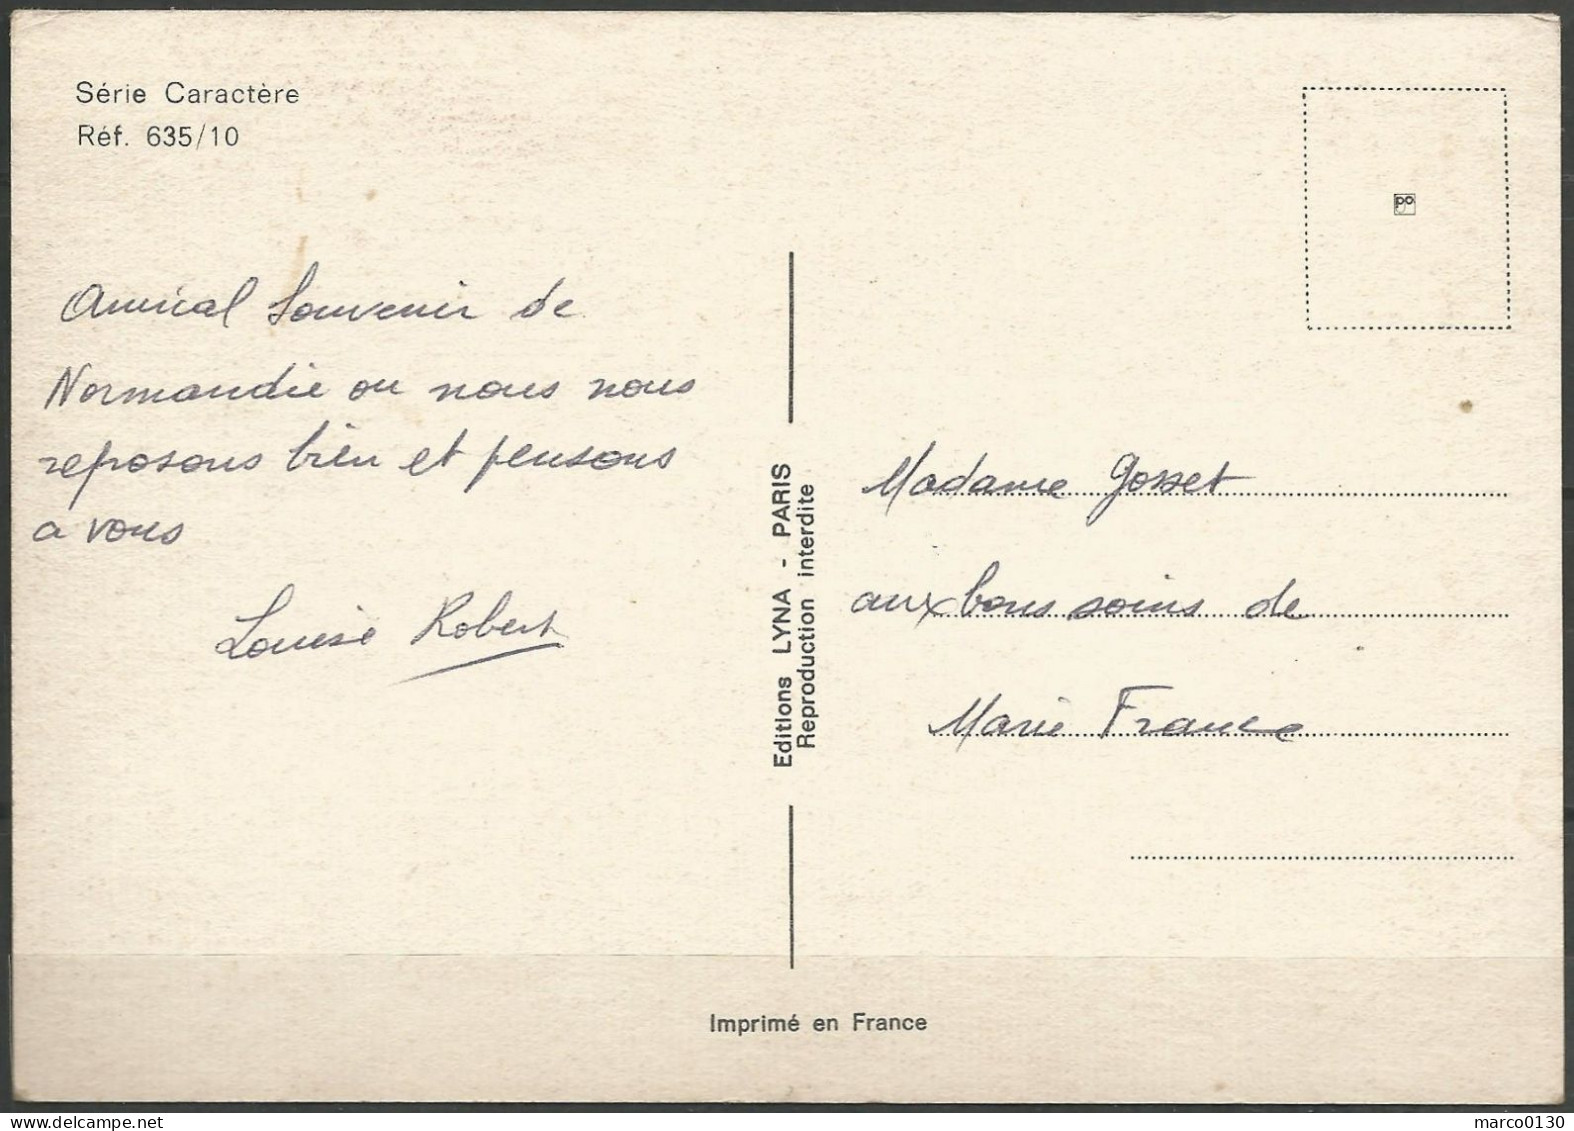 Série Caractère
Réf. 635/10
po
Amical Souvenir de
Normandie ou nous nous
reposons bien et pensons
a vous
Louise Robert
Editions LYNA - PARIS
Reproduction interdite
Madame Gosset
aux bons soins de
Marie France
Imprimé en France
marco0130